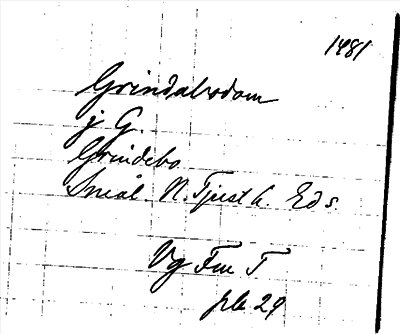 1481
Grindalsdam
j G.
Grindebo
Smål. N. Tjust h. Eds.
Vg Fm T
pb 29